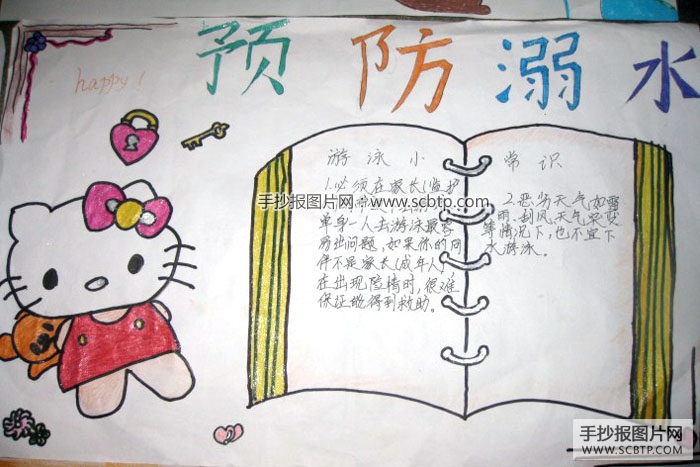 预防溺水
happy!
游泳小常识
1.必须在家长(监护
单身一人去游泳最容
易出问题,如果你的同
伴不是家长(成年人)
在出现险情时,很难
保证能得到救助。
2.恶劣天气,如雷
雨、刮风、天气突变
等情况下,也不宜下
水游泳。
手抄报图片网 - www.scbtp.com
手抄报图片网
WWW.SCBTP.COM